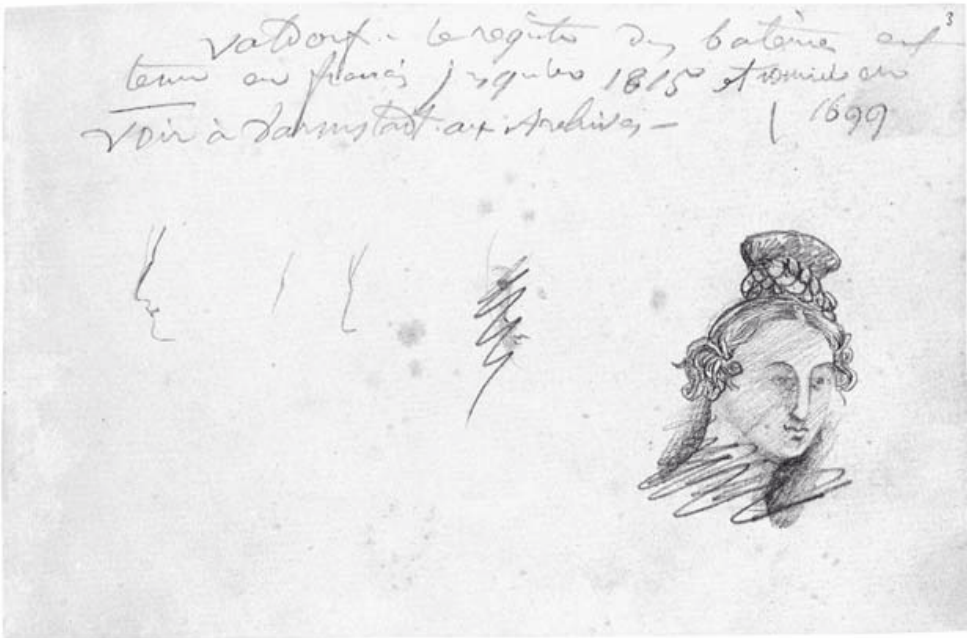 3
Valdorf - le registre des batêmes est
tenu en francais jusqu'en 1815 et commence en
Voir à Darmstadt aux Archives - | 1699